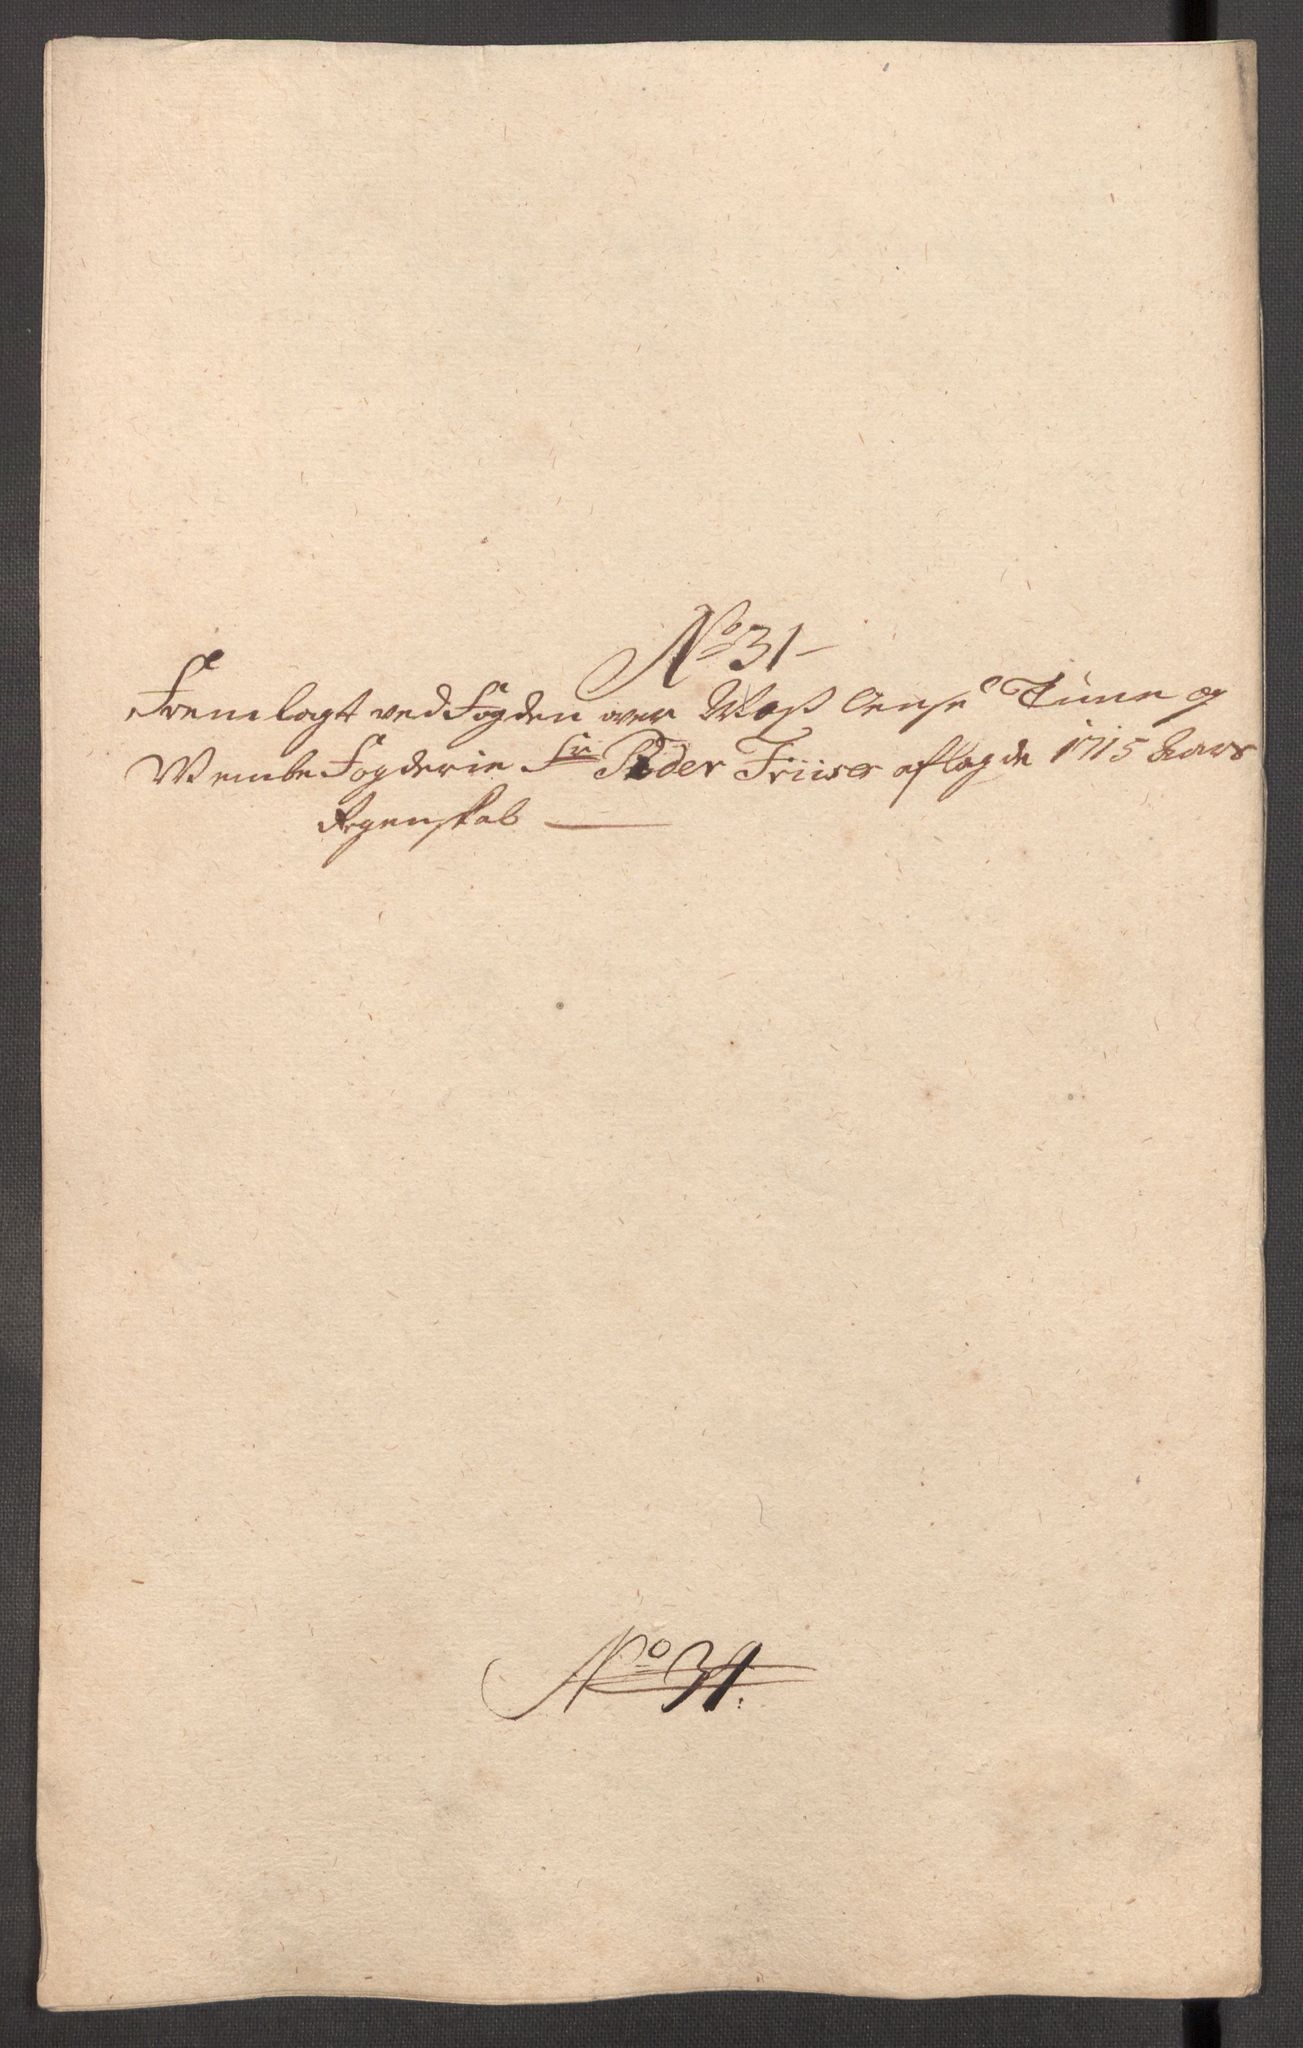 No 31
Fremlagt ved Fogden over Moss lense Tune og
Wembe Fogderie Sr Peder Friiser aflagde 1715 Aars
Regenskab
No 31.